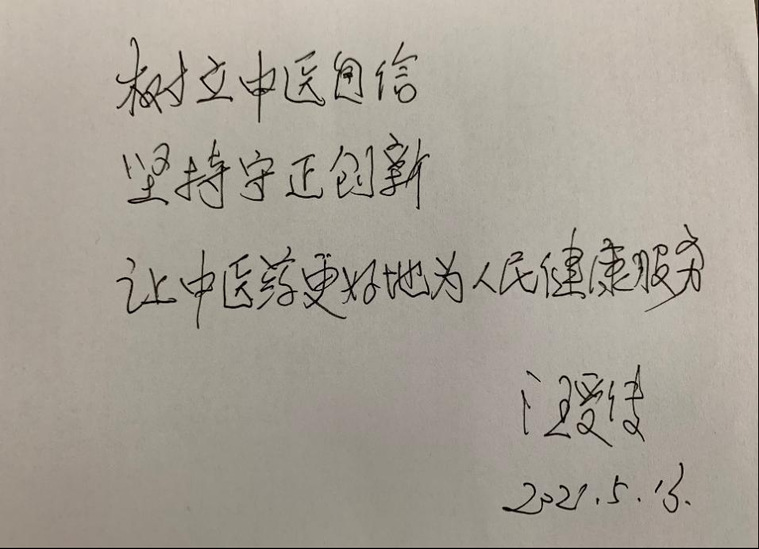 树立中医自信
坚持守正创新
让中医药更好地为人民健康服务
汪受传
2021.5.13.